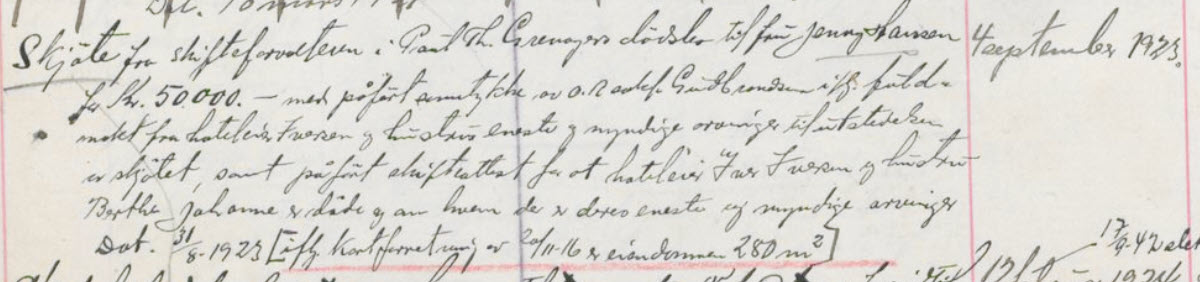 Dat. 10 mars 19
Skjöte fra skifteforvalteren i Paul Th. Grenagers dödsbo til fru Jenny Hansen 4 september 1923.
for Kr. 50.000.- med påfört samtykke av o.r.sakf. Gudbrandsen ifg. fuld-
makt fra hoteleier Iversen og hustrus eneste og myndige arvinger til utstedelsen
av skjötet, samt påfört skifteattest for at hoteleier Iver Iversen og hustru
Berthe Johanne er döde og om hvem der er deres eneste og myndige arvinger
Dat. 31/8-1923 [ifg. kartforretning av 20/11-16 er eiendommen 280 m²]
17/9-42 slet